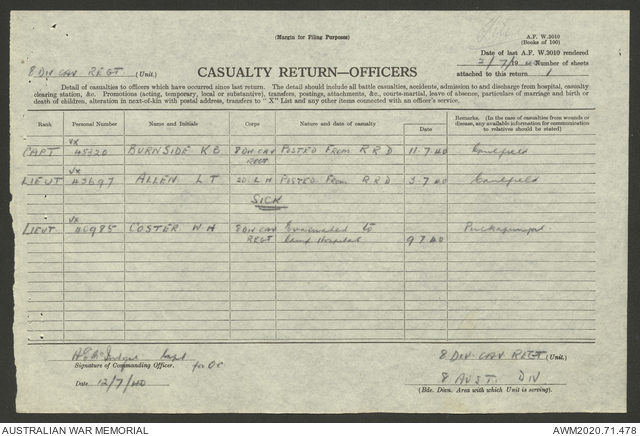 (Margin for Filing Purposes)
A.F. W.3010
(Books of 100)
Date of last A.F. W.3010 rendered
2/7/19 40 Number of sheets
8 DIV CAV REGT (Unit.)
CASUALTY RETURN—OFFICERS
attached to this return 1
Detail of casualties to officers which have occurred since last return. The detail should include all battle casualties, accidents, admission to and discharge from hospital, casualty
clearing station, &c. Promotions (acting, temporary, local or substantive), transfers, postings, attachments, &c., courts-martial, leave of absence, particulars of marriage and birth or
death of children, alteration in next-of-kin with postal address, transfers to "X" List and any other items connected with an officer's service.
Rank Personal Number Name and Initials Corps Nature and date of casualty Date Remarks, (In the case of casualties from wounds or disease, any available information for communication to relatives should be stated)
VX
CAPT 45320 BURNSIDE K B 8 DIV CAV POSTED FROM R R D 11 7 40 Caulfield
REGT
VX
LIEUT 43697 ALLEN L T 20 L H POSTED FROM R R D 3 7 40 Caulfield
SICK
VX
LIEUT 40985 COSTER W H 8 DIV CAV Evacuated to Puckapunyal
REGT Camp Hospital 9 7 40
Capt
Signature of Commanding Officer. for O C
Date 12/7/40
8 DIV CAV REGT (Unit.)
8 AUST. DIV
(Bde. Divn. Area with which Unit is serving).
AUSTRALIAN WAR MEMORIAL
AWM2020.71.478